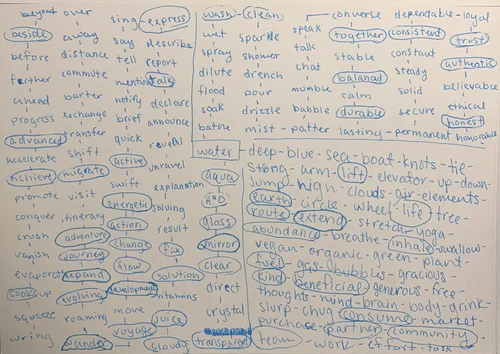 beyond over sing-express wash-clean converse dependable-loyal
beside away say describe wet sparkle speak together consistent trust
before distance tell report spray shower talk stable constant authentic
further commute mention talk dilute drench chat balanced steady believable
ahead barter notify declare flood pour mumble calm solid ethical
progress exchange brief announce soak drizzle babble durable secure honest
advanced transfer quick reveal bathe mist-patter lasting-permanent honorable
accelerate shift active unravel water-deep-blue-sea-boat-knots-tie
achieve migrate swift explanation aqua strong-arm-lift-elevator-up-down
promote visit energetic solving H2O jump-high-clouds-air-elements
conquer itinerary action result glass earth-circle-wheel-life-tree-
crush adventure change fix mirror route-extend-stretch-yoga
vanish journey flow solution clear abundance-breathe-inhale-swallow
evaporate expand development vitamins direct vegan-organic-green-plant
soak up evolving move juice crystal fuel-gas-bubbles-gracious
squeeze roaming voyage cloudy transparent kind-beneficial-generous-free-
wring wander thoughts-mind-brain-body-drink-
slurp-chug-consume-market-
purchase-partner-community-
team-work-effort-task